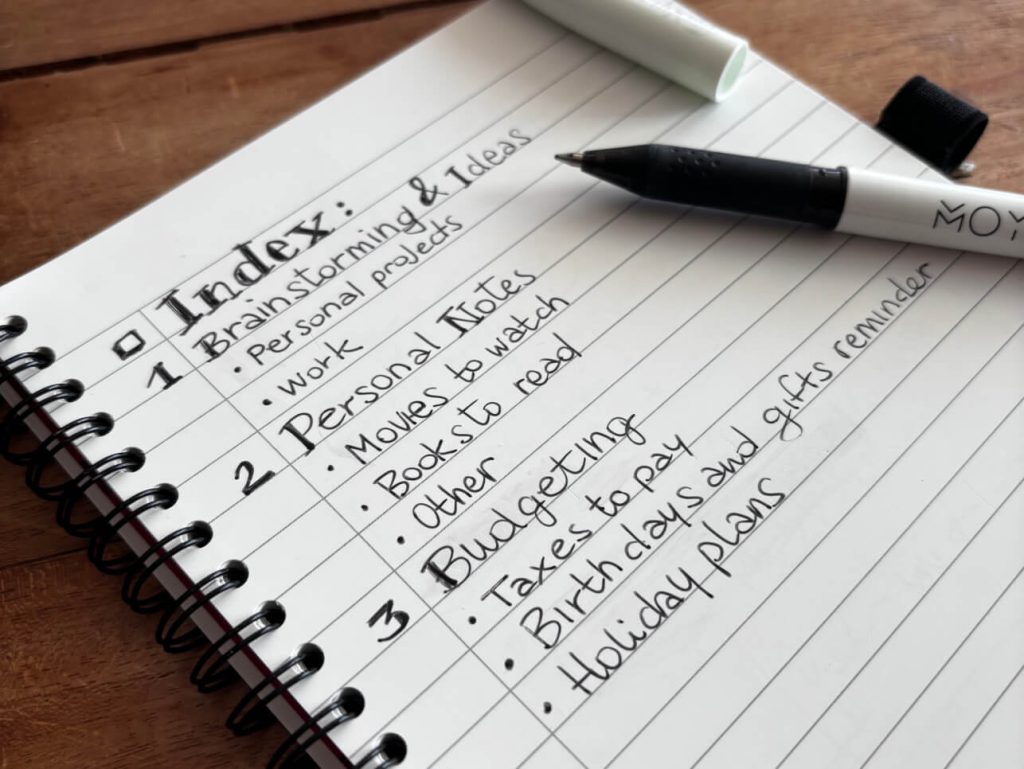 Index:
1 Brainstorming & Ideas
• Personal projects
• Work
2 Personal Notes
• Movies to watch
• Books to read
• Other
3 Budgeting
• Taxes to pay
• Birthdays and gifts reminder
• Holiday plans